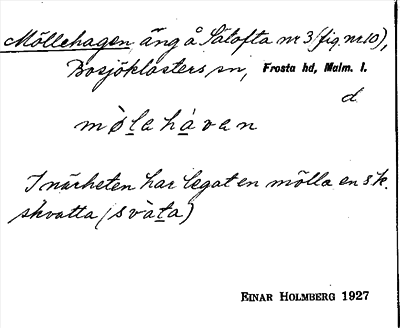 Möllehagen, äng å Sätofta nr 3 (fig. nr 10),
Bosjöklosters sn, Frosta hd, Malm. l.
d
mø̀lahàvan
I närheten har legat en mölla en s.k.
skvatta (svàta)
EINAR HOLMBERG 1927